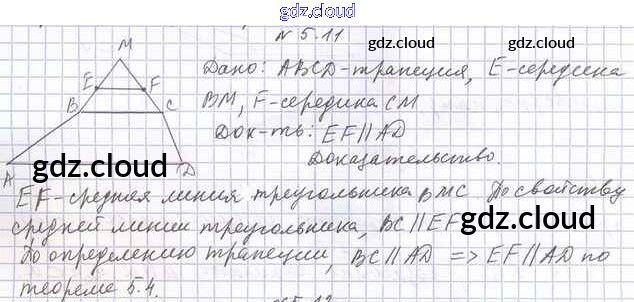 gdz.cloud
N 5.11
gdz.cloud gdz.cloud
M
Дано: ABCD-трапеция, E-середина
E F
BM, F-середина CM
B C
Док-ть: EF || AD
gdz.cloud
Доказательство.
A D
gdz.cloud
EF-средняя линия треугольника BMC. По свойству
средней линии треугольника, BC || EF
gdz.cloud
По определению трапеции, BC || AD => EF || AD по
теореме 5.4.